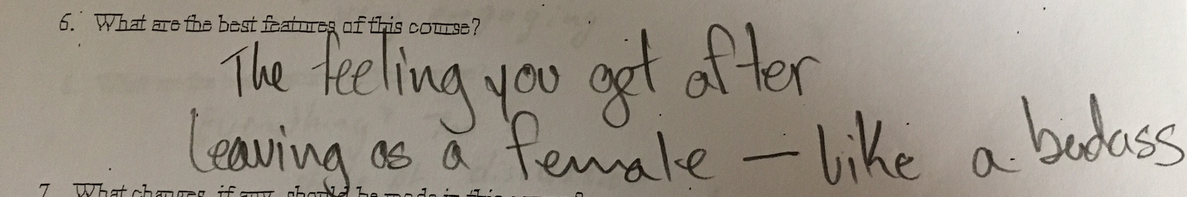 6. What are the best features of this course?
The feeling you get after
leaving as a female — like a badass
7. What changes, if any, should be made in this course?